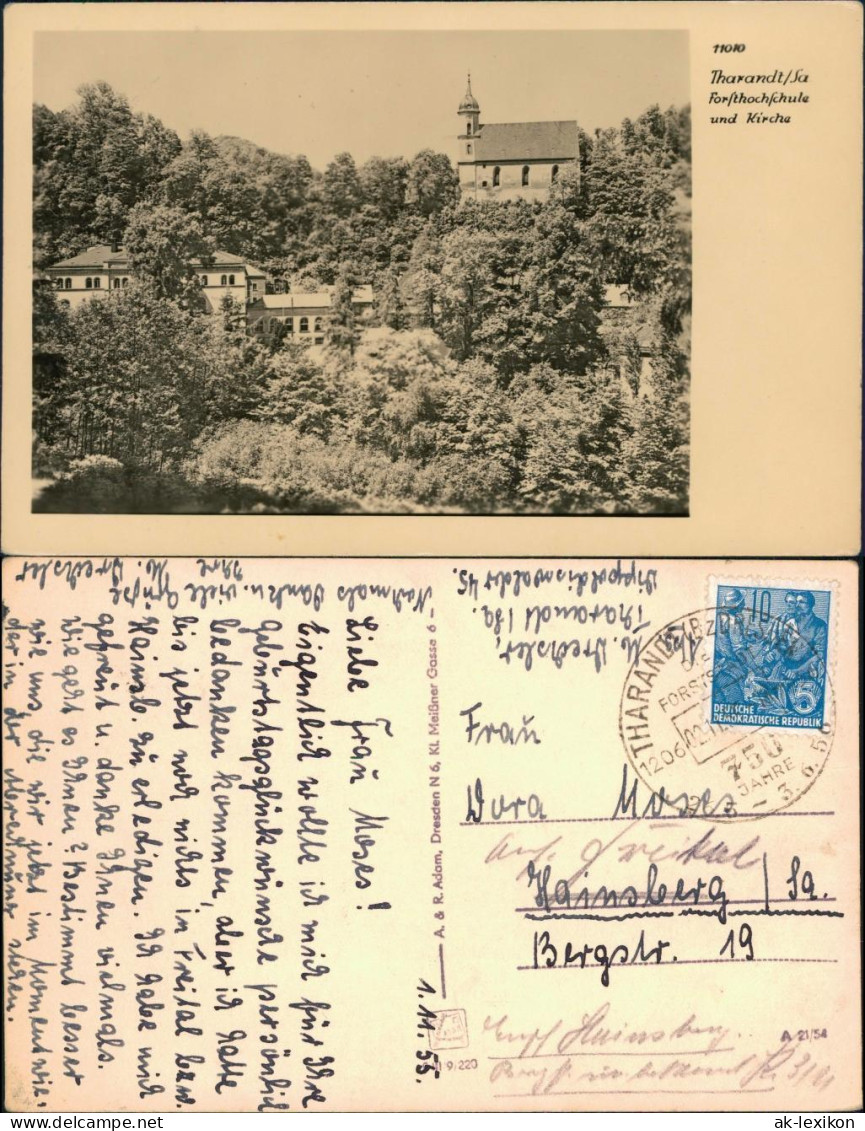 11010
Tharandt/Sa
Forsthochschule
und Kirche
Nochmals Dank u. viele Grüße
Ihre
M. Drechsler
M. Drechsler,
Tharandt / Sa.
Dippoldiswalder 45.
1. 11. 55.
Liebe Frau Moses!
Eigentlich wollte ich mich für Ihre
Geburtstagsglückwünsche persönlich
bedanken kommen, aber ich hatte
bis jetzt noch nichts in Freital bzw.
Hainsb. zu erledigen. Ich habe mich
gefreut u. danke Ihnen vielmals.
Wie geht es Ihnen? Bestimmt besser
wie uns, die wir jetzt im Moment wie-
der in der stehen.
A. & R. Adam, Dresden N 6, Kl. Meißner Gasse 6
THARANDT
1206.02.11
FORSTSTADT
750
JAHRE
- 3. 6. 56
10
5
DEUTSCHE
DEMOKRATISCHE REPUBLIK
Frau
Dora Moses
auf Freital
Hainsberg / Sa.
Bergstr. 19
Empf Hainsberg.
A 21/54
9/220
ak-lexikon